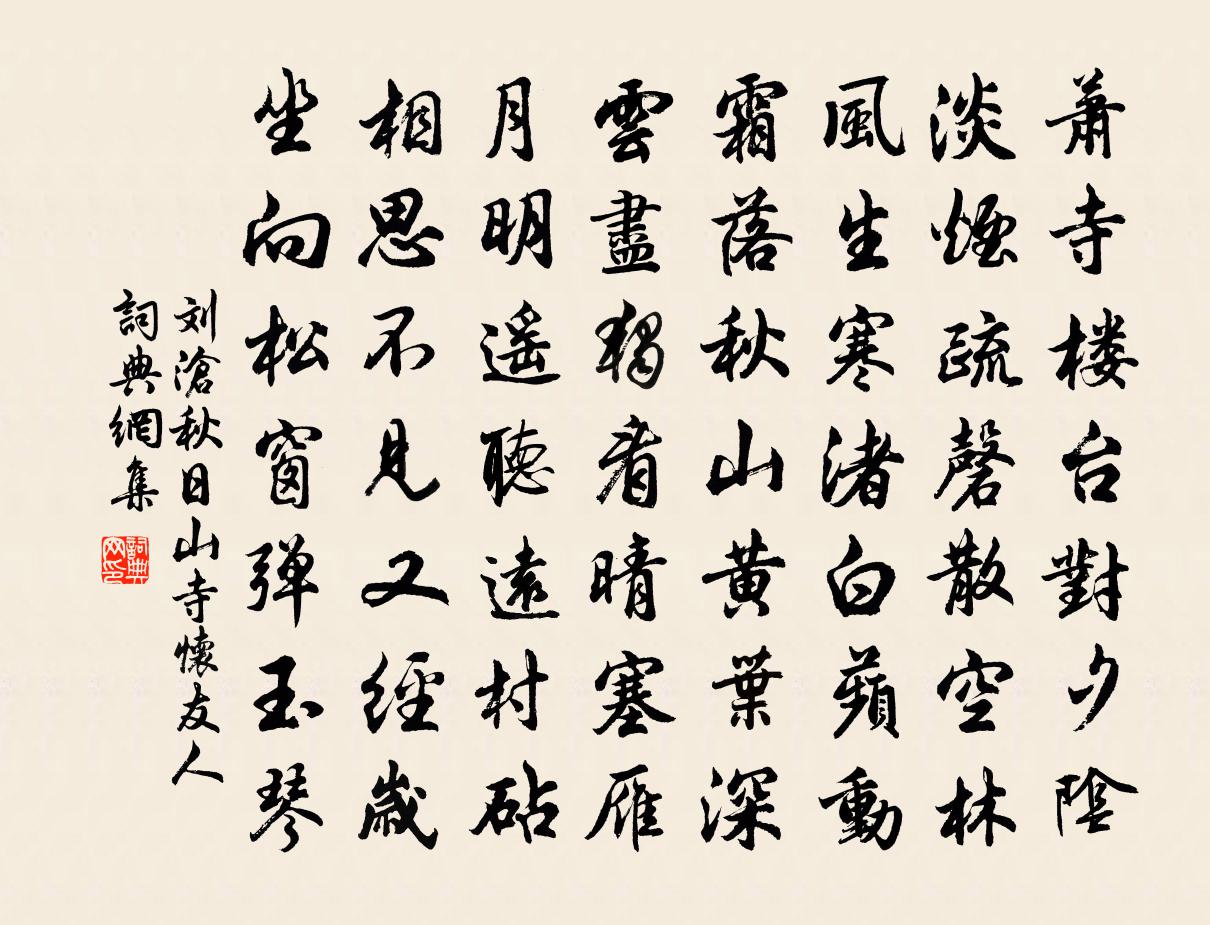 萧寺楼台對夕陰
淡煙疏磬散空林
風生寒渚白蘋動
霜落秋山黄葉深
雲盡獨看晴塞雁
月明遥聽遠村砧
相思不見又經歲
坐向松窗彈玉琴
刘滄秋日山寺懷友人
詞典網集
詞典网印